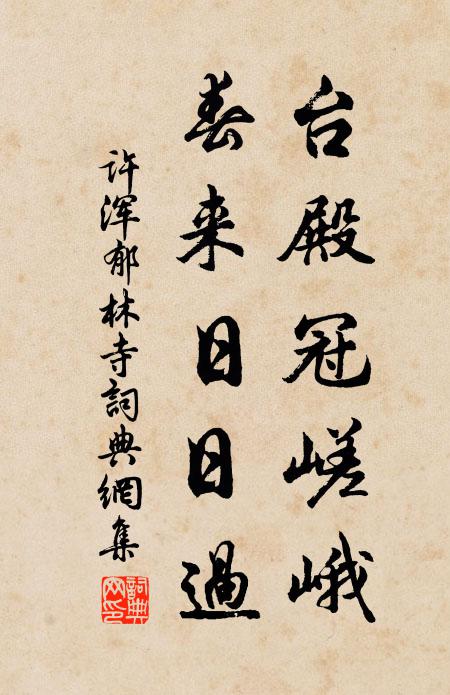 台殿冠嵯峨
春来日日過
许浑郁林寺詞典網集
詞典网印